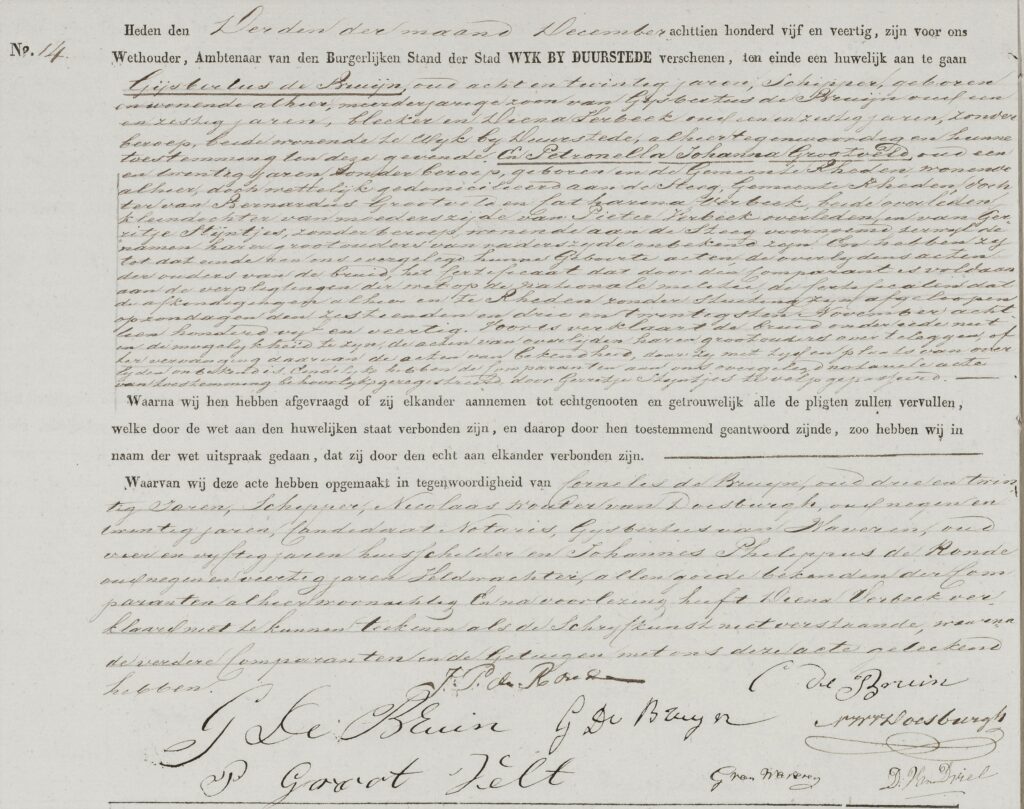 Heden den Derden der maand December achttien honderd vijf en veertig, zijn voor ons
No. 14. Wethouder, Ambtenaar van den Burgerlijken Stand der Stad WYK BY DUURSTEDE verschenen, ten einde een huwelijk aan te gaan
Gijsbertus de Bruijn, oud acht en twintig jaren, Schipper, geboren
en wonende alhier, meerderjarige zoon van Gijsbertus de Bruijn oud een
en zestig jaren, bleeker en Diena Verbeek oud een en zestig jaren, zonder
beroep, beide wonende te Wyk by Duurstede, alhier tegenwoordig en hunne
toestemming ten deze gevende. En Petronella Johanna Grootveld, oud een
en twintig jaren, zonder beroep, geboren in de Gemeente Rheden wonende
alhier, doch wettelijk gedomicilieerd aan de Steeg, Gemeente Rheden, doch-
ter van Bernardus Grootveld en Catharina Verbeek, beide overleden,
kleindochter van moederszijde van Pieter Verbeek overleden, en van Ger-
ritje Stijntjes, zonder beroep, wonende aan de Steeg voornoemd terwijl de
namen harer grootouders van vaderszyde onbekend zyn. En hebben zij
tot dat einde aan ons overgelegd hunne Geboorte acten, de overlydens acten
der ouders van de bruid, het Certificaat dat door den Comparant is voldaan
aan de verpligtingen der wet op de nationale melitie, de Certificaten dat
de afkondigingen alhier en te Rheden zonder stuiting zyn afgeloopen
op zondagen den zestienden en drie en twintigsten November acht-
tien honderd vyf en veertig. Voorts verklaart de bruid onder eede niet
in de mogelykheid te zyn, de acten van overlyden harer grootouders over te leggen, of
ter vervanging daarvan de acten van bekendheid, daar zy met tyd en plaats van over-
lyden onbekend is. Eindelyk hebben de Comparanten aan ons overgelegd notariele acte
van toestemming behoorlyk geregistreerd, door Gerritje Stijntjes te Velp gepasseerd.
Waarna wij hen hebben afgevraagd of zij elkander aannemen tot echtgenooten en getrouwelijk alle de pligten zullen vervullen,
welke door de wet aan den huwelijken staat verbonden zijn, en daarop door hen toestemmend geantwoord zijnde, zoo hebben wij in
naam der wet uitspraak gedaan, dat zij door den echt aan elkander verbonden zijn.
Waarvan wij deze acte hebben opgemaakt in tegenwoordigheid van Cornelis de Bruyn, oud drie en twin-
tig Jaren, Schipper, Nicolaas Wouter van Doesburgh, oud negen en
twintig jaren, Candidaat Notaris, Gysbertus van Waveren, oud
vier en vyftig jaren huisschilder en Johannes Philippus de Ronde
oud negen en veertig jaren Veldwachter, allen goede bekenden der Com-
paranten alhier woonachtig En na voorlezing heeft Diena Verbeek ver-
klaard niet te kunnen teekenen als de Schryfkunst niet verstaande, waarna
de verdere Comparanten en de Getuigen met ons deze acte geteekend
hebben.
J. P. de Ronde
C de Bruin
G De Bruin
G De Bruyn
NWVDoesburgh
P Groot Velt
G van Waveren
D. Van Driel